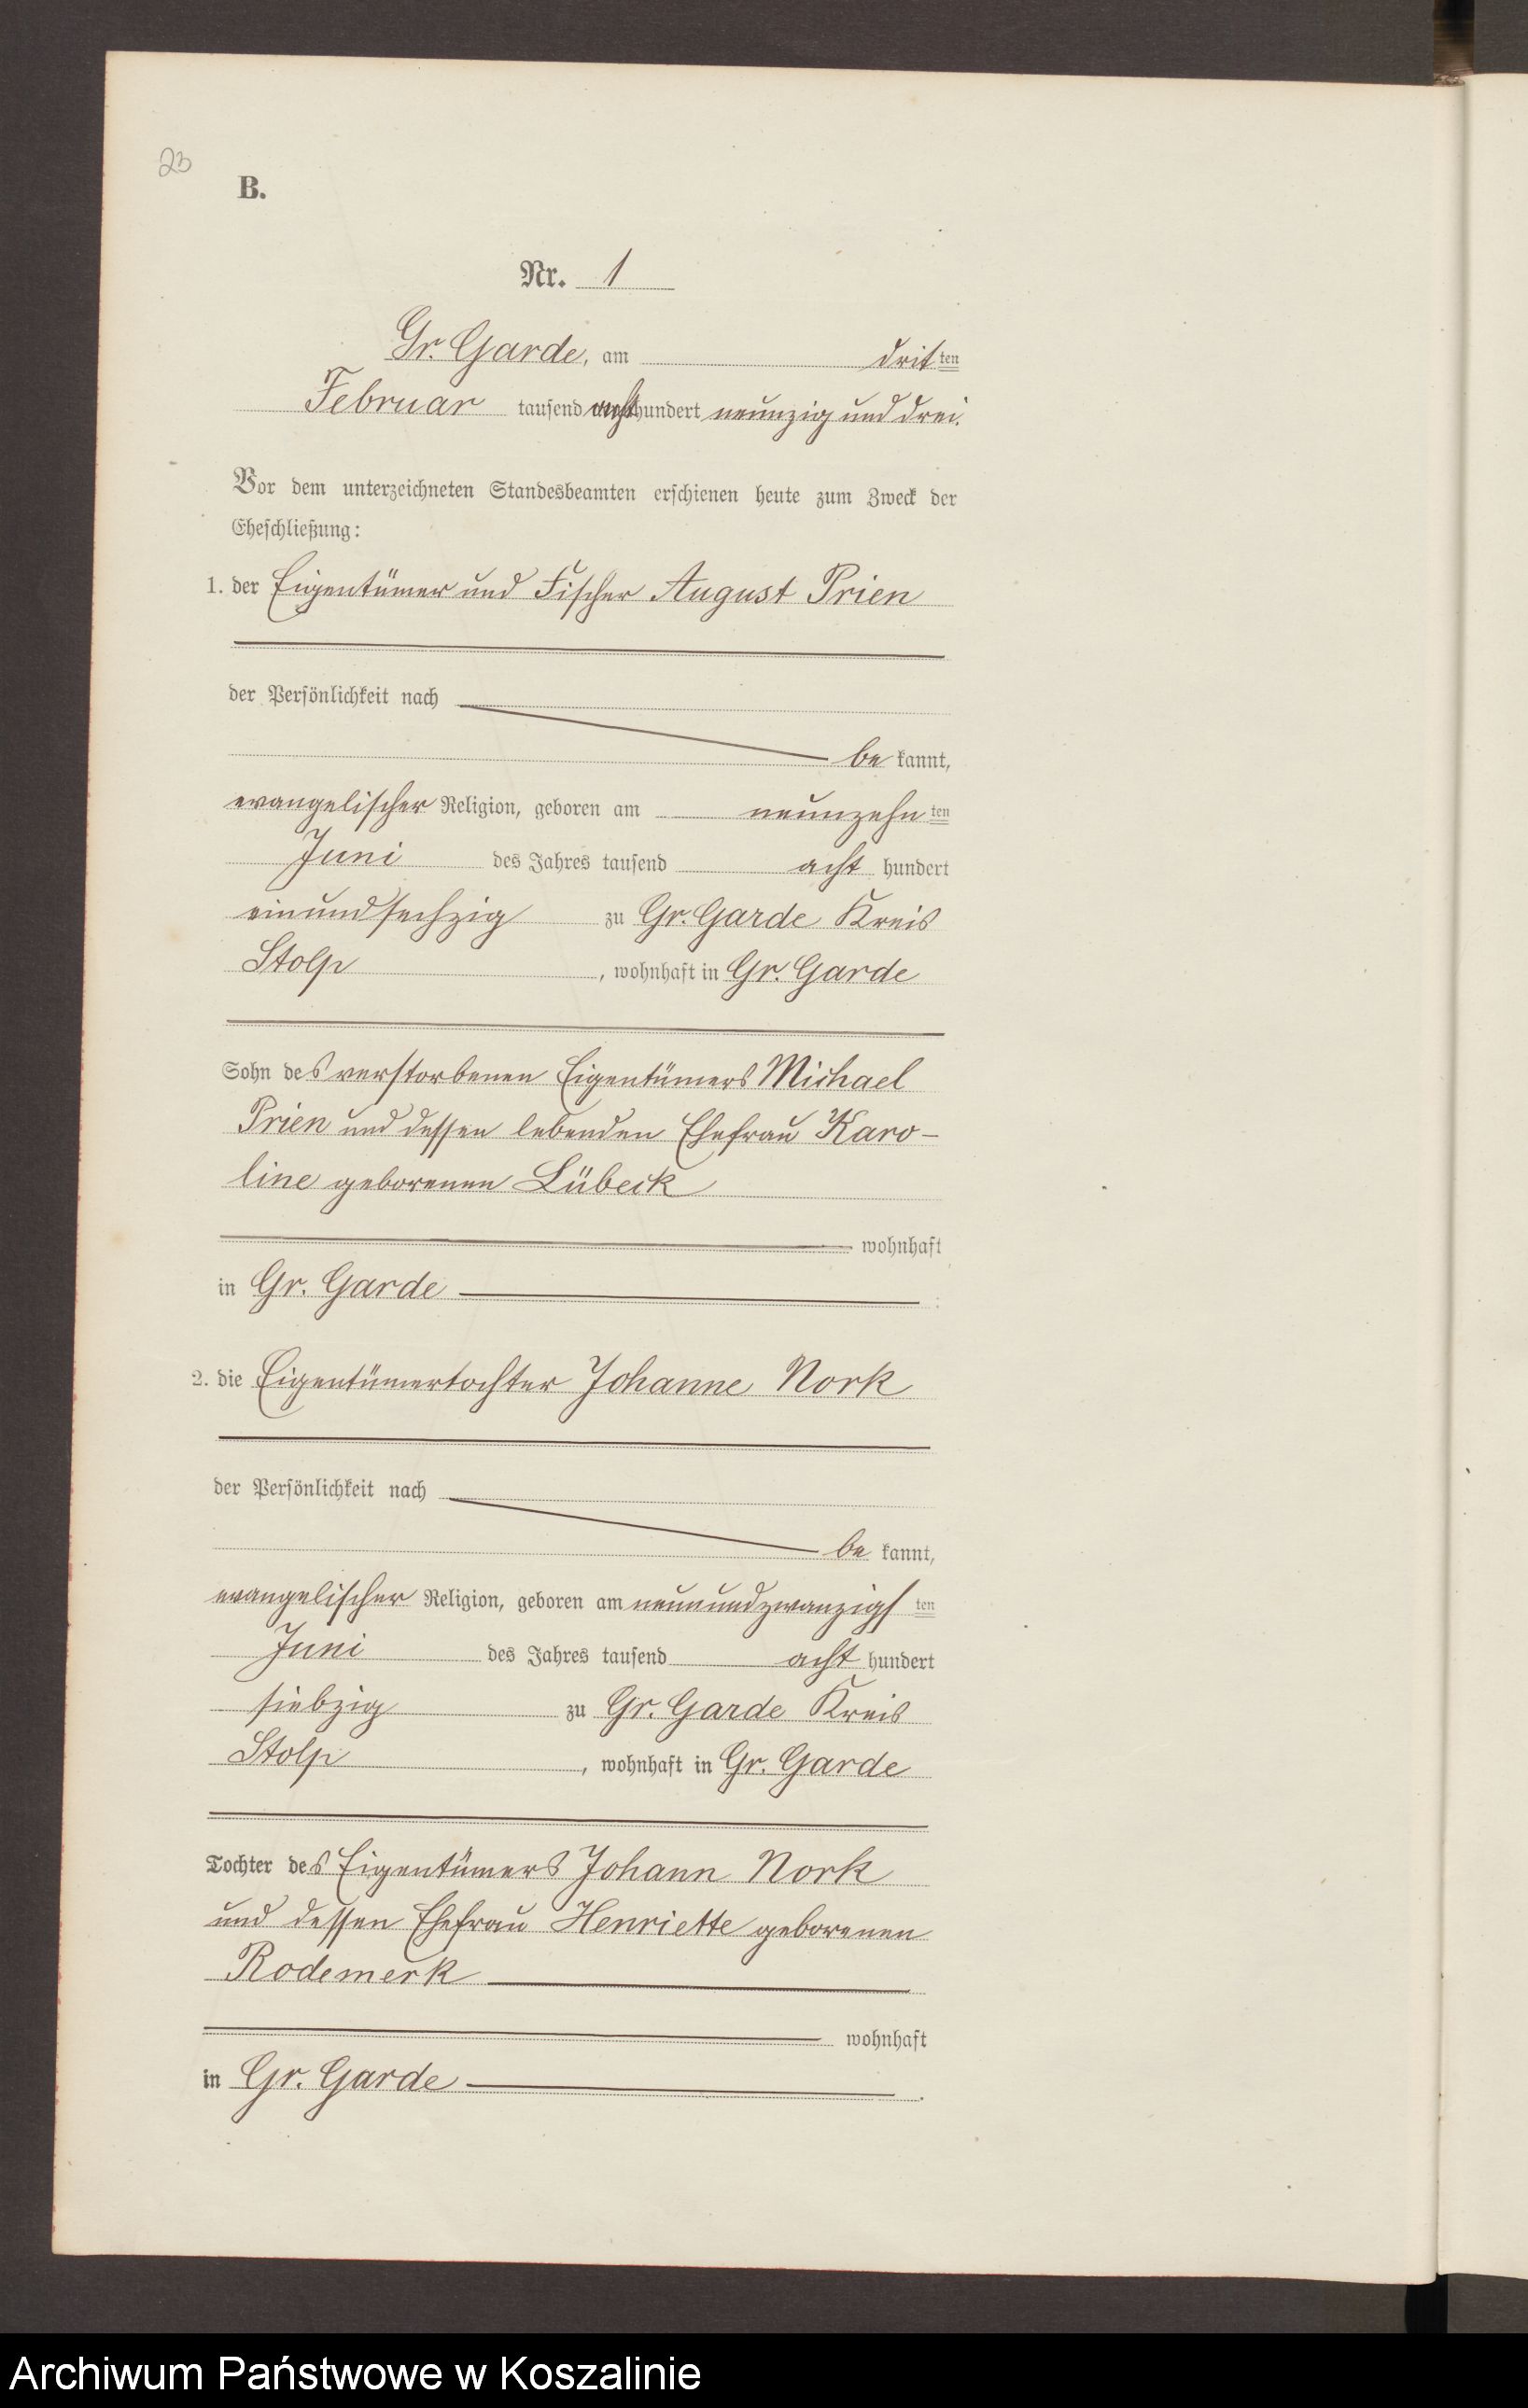 23
B.
Nr. 1
Gr. Garde, am dritten
Februar tausend achthundert neunzig und drei.
Vor dem unterzeichneten Standesbeamten erschienen heute zum Zweck der
Eheschließung:
1. der Eigentümer und Fischer August Prien
der Persönlichkeit nach
be kannt,
evangelischer Religion, geboren am neunzehnten
Juni des Jahres tausend acht hundert
einundsechzig zu Gr. Garde Kreis
Stolp, wohnhaft in Gr. Garde
Sohn des verstorbenen Eigentümers Michael
Prien und dessen lebenden Ehefrau Karo-
line geborenen Lübeck
wohnhaft
in Gr. Garde
2. die Eigentümertochter Johanne Nork
der Persönlichkeit nach
be kannt,
evangelischer Religion, geboren am neunundzwanzigsten
Juni des Jahres tausend acht hundert
siebzig zu Gr. Garde Kreis
Stolp, wohnhaft in Gr. Garde
Tochter des Eigentümers Johann Nork
und dessen Ehefrau Henriette geborenen
Rodemerk
wohnhaft
in Gr. Garde.
Archiwum Państwowe w Koszalinie